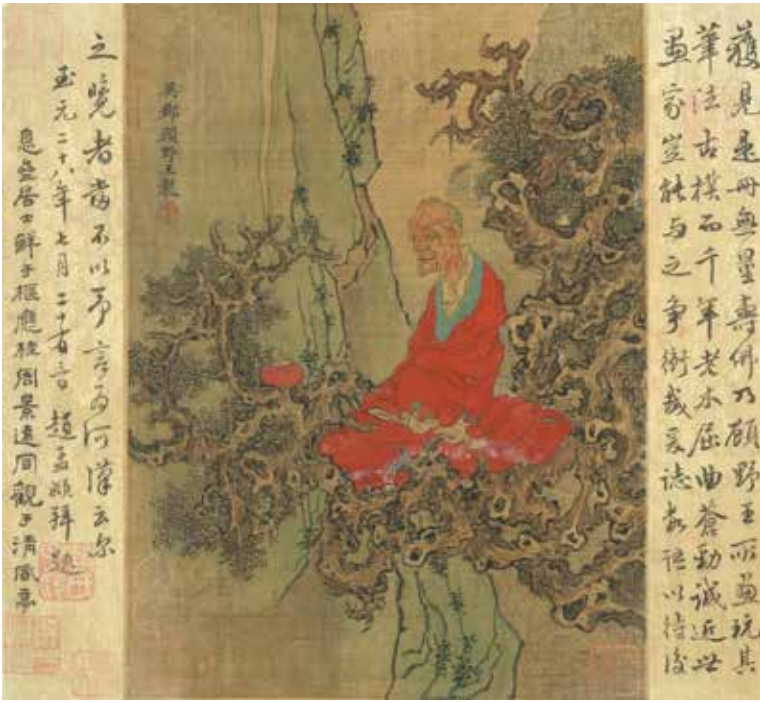 獲見是冊無量壽佛乃顧野王所畫玩其
筆法古樸而千年老木屈曲蒼勁誠近世
畫家豈能与之爭衡哉爰誌數語以待後
吳郡顧野王製
之曉者當不以予言為河漢云尔
至元二十八年七月二十有 趙孟頫拜題
息盦居士鮮于樞應 周景遠同觀于清風亭